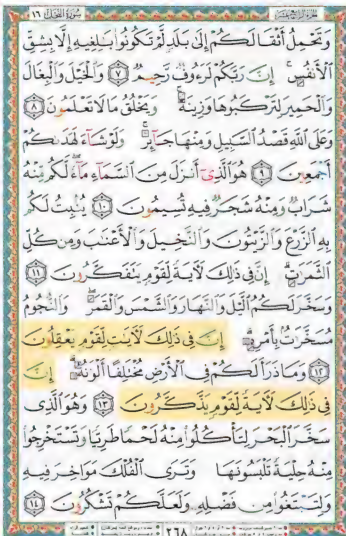 سُورَةُ النَّحْلِ ١٦
الجزء الرابع عشر
وَتَحْمِلُ أَثْقَالَكُمْ إِلَىٰ بَلَدٍ لَّمْ تَكُونُوا۟ بَـٰلِغِيهِ إِلَّا بِشِقِّ
ٱلْأَنفُسِ ۚ إِنَّ رَبَّكُمْ لَرَءُوفٌ رَّحِيمٌ ٧ وَٱلْخَيْلَ وَٱلْبِغَالَ
وَٱلْحَمِيرَ لِتَرْكَبُوهَا وَزِينَةً ۚ وَيَخْلُقُ مَا لَا تَعْلَمُونَ ٨
وَعَلَى ٱللَّهِ قَصْدُ ٱلسَّبِيلِ وَمِنْهَا جَآئِرٌ ۚ وَلَوْ شَآءَ لَهَدَىٰكُمْ
أَجْمَعِينَ ٩ هُوَ ٱلَّذِىٓ أَنزَلَ مِنَ ٱلسَّمَآءِ مَآءً ۖ لَّكُم مِّنْهُ
شَرَابٌ وَمِنْهُ شَجَرٌ فِيهِ تُسِيمُونَ ١٠ يُنۢبِتُ لَكُم
بِهِ ٱلزَّرْعَ وَٱلزَّيْتُونَ وَٱلنَّخِيلَ وَٱلْأَعْنَـٰبَ وَمِن كُلِّ
ٱلثَّمَرَٰتِ ۗ إِنَّ فِى ذَٰلِكَ لَـَٔايَةً لِّقَوْمٍ يَتَفَكَّرُونَ ١١
وَسَخَّرَ لَكُمُ ٱلَّيْلَ وَٱلنَّهَارَ وَٱلشَّمْسَ وَٱلْقَمَرَ ۖ وَٱلنُّجُومُ
مُسَخَّرَٰتٌۢ بِأَمْرِهِۦٓ ۗ إِنَّ فِى ذَٰلِكَ لَـَٔايَـٰتٍ لِّقَوْمٍ يَعْقِلُونَ
١٢ وَمَا ذَرَأَ لَكُمْ فِى ٱلْأَرْضِ مُخْتَلِفًا أَلْوَٰنُهُۥٓ ۗ إِنَّ
فِى ذَٰلِكَ لَـَٔايَةً لِّقَوْمٍ يَذَّكَّرُونَ ١٣ وَهُوَ ٱلَّذِى
سَخَّرَ ٱلْبَحْرَ لِتَأْكُلُوا۟ مِنْهُ لَحْمًا طَرِيًّا وَتَسْتَخْرِجُوا۟
مِنْهُ حِلْيَةً تَلْبَسُونَهَا وَتَرَى ٱلْفُلْكَ مَوَاخِرَ فِيهِ
وَلِتَبْتَغُوا۟ مِن فَضْلِهِۦ وَلَعَلَّكُمْ تَشْكُرُونَ ١٤
٢٦٨